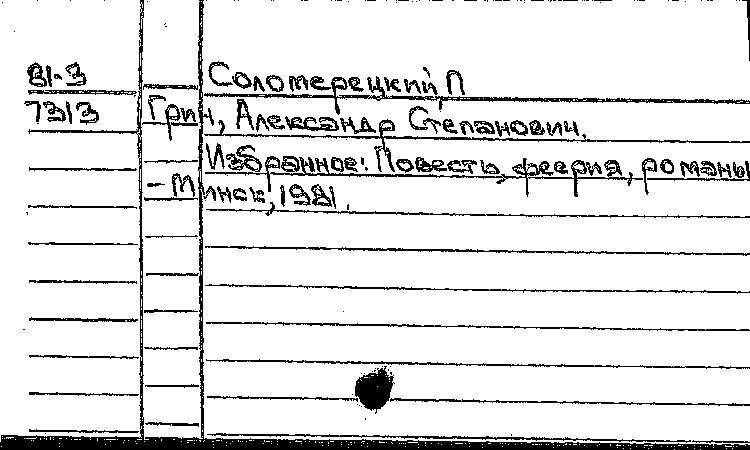 81-3 Соломерецкий, П
7313 Грин, Александр Степанович.
Избранное: Повесть, феерия, романы
- Минск, 1981.